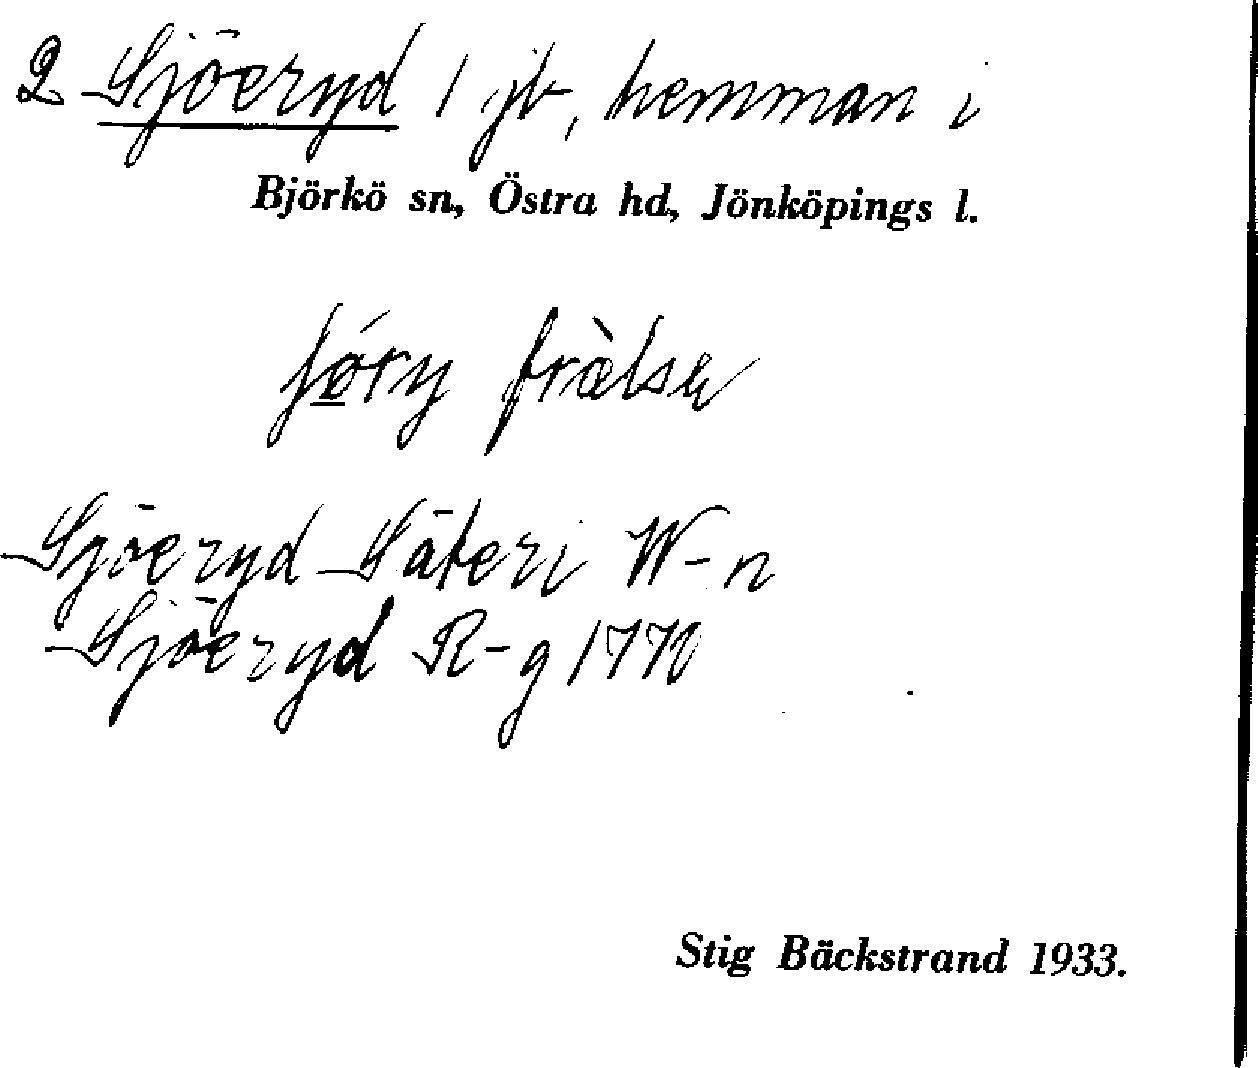 2 Sjöeryd 1 jb, hemman i
Björkö sn, Östra hd, Jönköpings l.
frälse
Sjöeryd Säteri W-n
Sjöeryd R-g 1770
Stig Bäckstrand 1933.